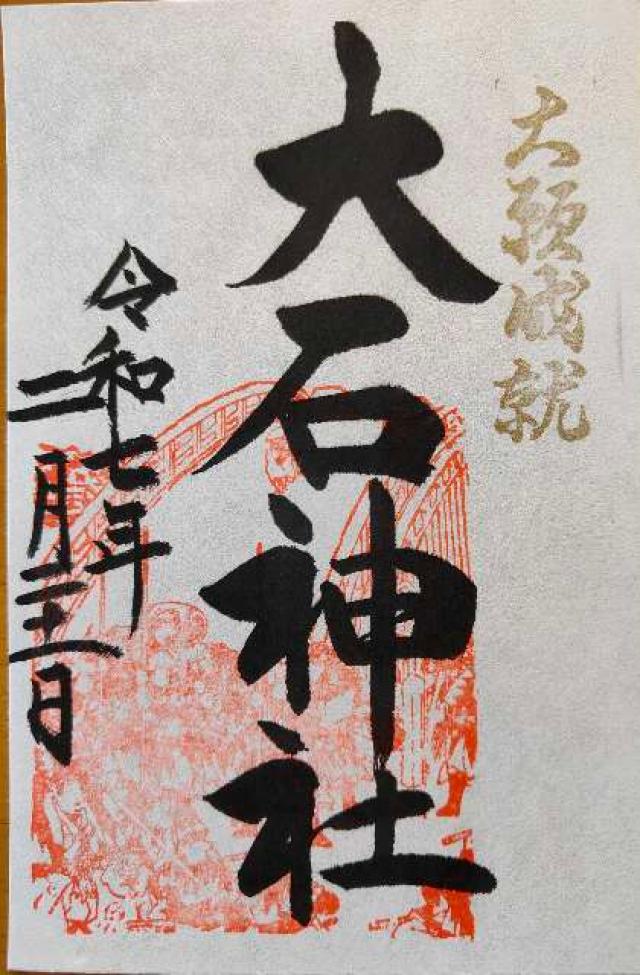 大願成就
大石神社
令和七年
二月二十一日